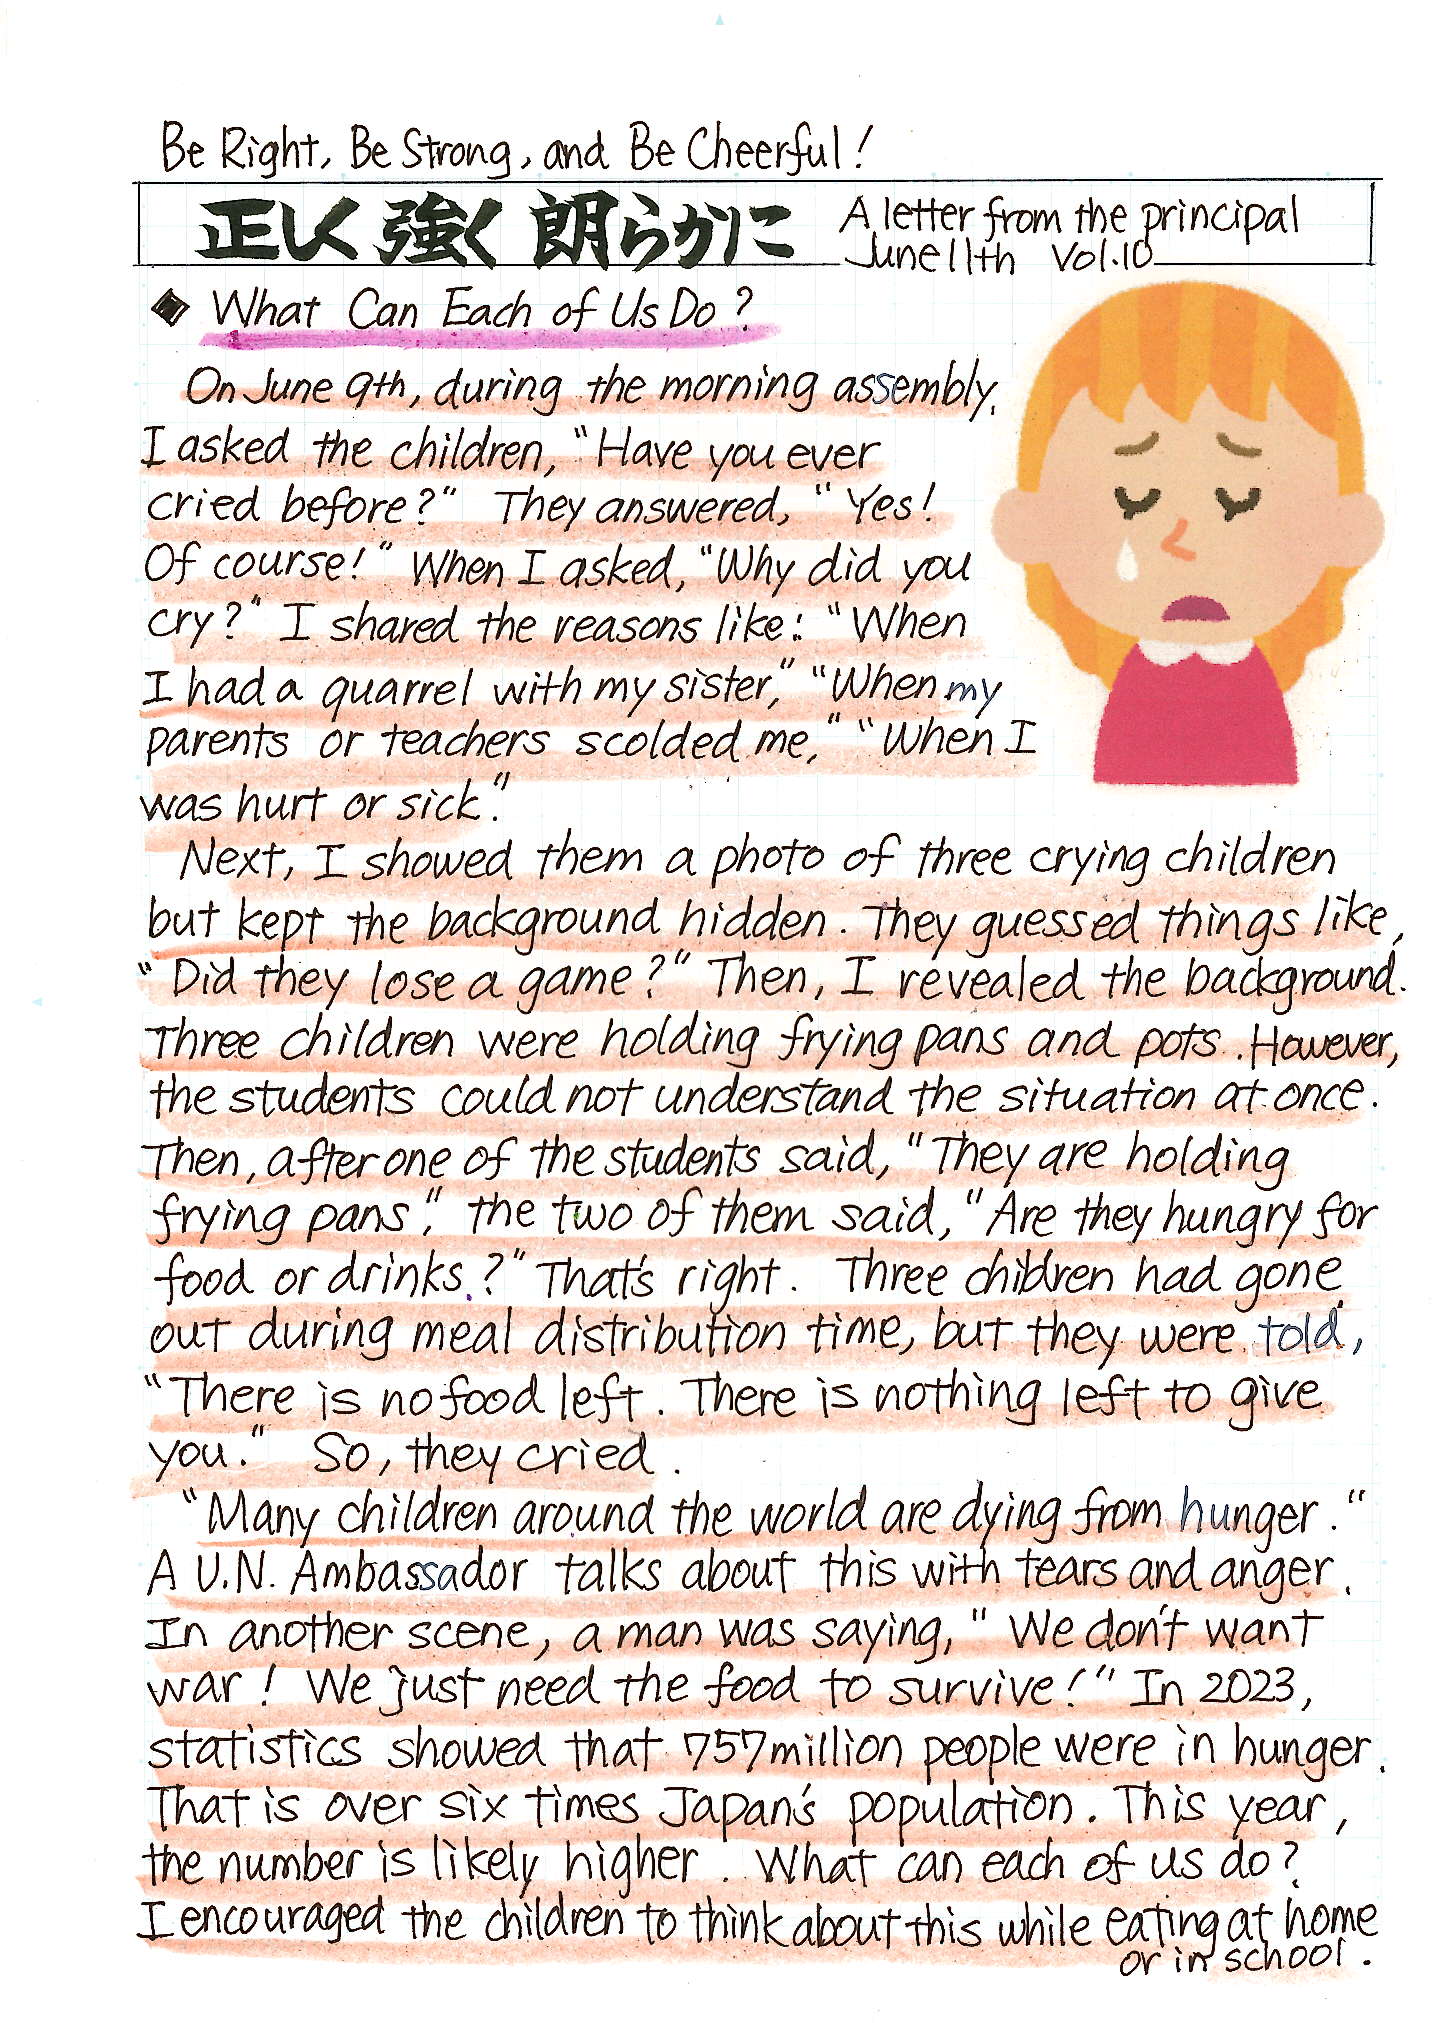 Be Right, Be Strong, and Be Cheerful!
正しく 強く 朗らかに
A letter from the principal
June 11th Vol.10
◆ What Can Each of Us Do?
On June 9th, during the morning assembly,
I asked the children, "Have you ever
cried before?" They answered, "Yes!
Of course!" When I asked, "Why did you
cry?" I shared the reasons like: "When
I had a quarrel with my sister," "When my
parents or teachers scolded me," "When I
was hurt or sick."
Next, I showed them a photo of three crying children
but kept the background hidden. They guessed things like,
"Did they lose a game?" Then, I revealed the background.
Three children were holding frying pans and pots. However,
the students could not understand the situation at once.
Then, after one of the students said, "They are holding
frying pans", the two of them said, "Are they hungry for
food or drinks.?" That's right. Three children had gone
out during meal distribution time, but they were told,
"There is no food left. There is nothing left to give
you." So, they cried.
"Many children around the world are dying from hunger."
A U.N. Ambassador talks about this with tears and anger.
In another scene, a man was saying, "We don't want
war! We just need the food to survive!" In 2023,
statistics showed that 757 million people were in hunger.
That is over six times Japan's population. This year,
the number is likely higher. What can each of us do?
I encouraged the children to think about this while eating at home
or in school.